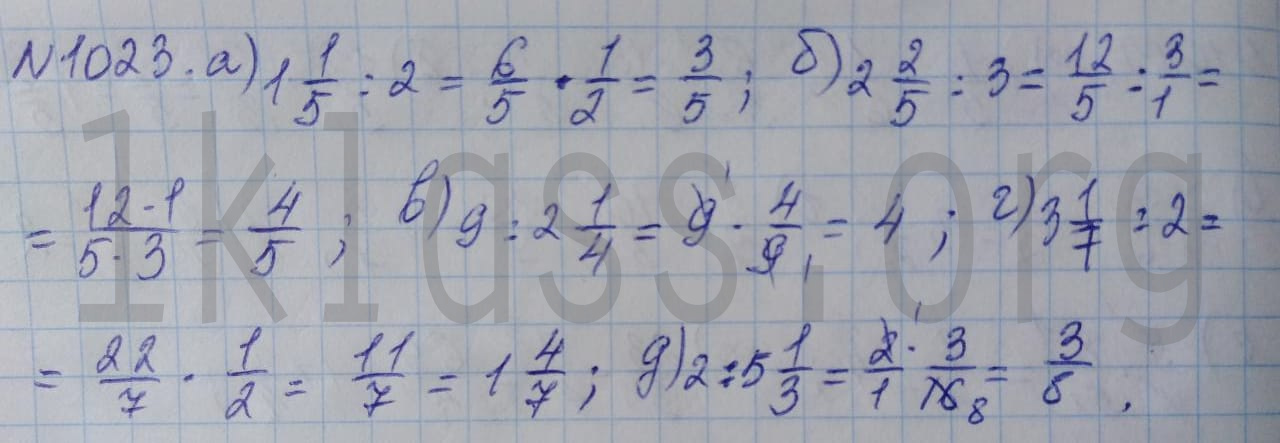 N1023. а) 1 1/5 : 2 = 6/5 · 1/2 = 3/5 ; б) 2 2/5 : 3 = 12/5 : 3/1 =
= 12·1/5·3 = 4/5 ; в) 9 : 2 1/4 = 9 1 · 4/9 1 = 4 ; г) 3 1/7 : 2 =
= 22/7 · 1/2 = 11/7 = 1 4/7 ; д) 2 : 5 1/3 = 2 1/1 · 3/16 8 = 3/8 .
1klass.org